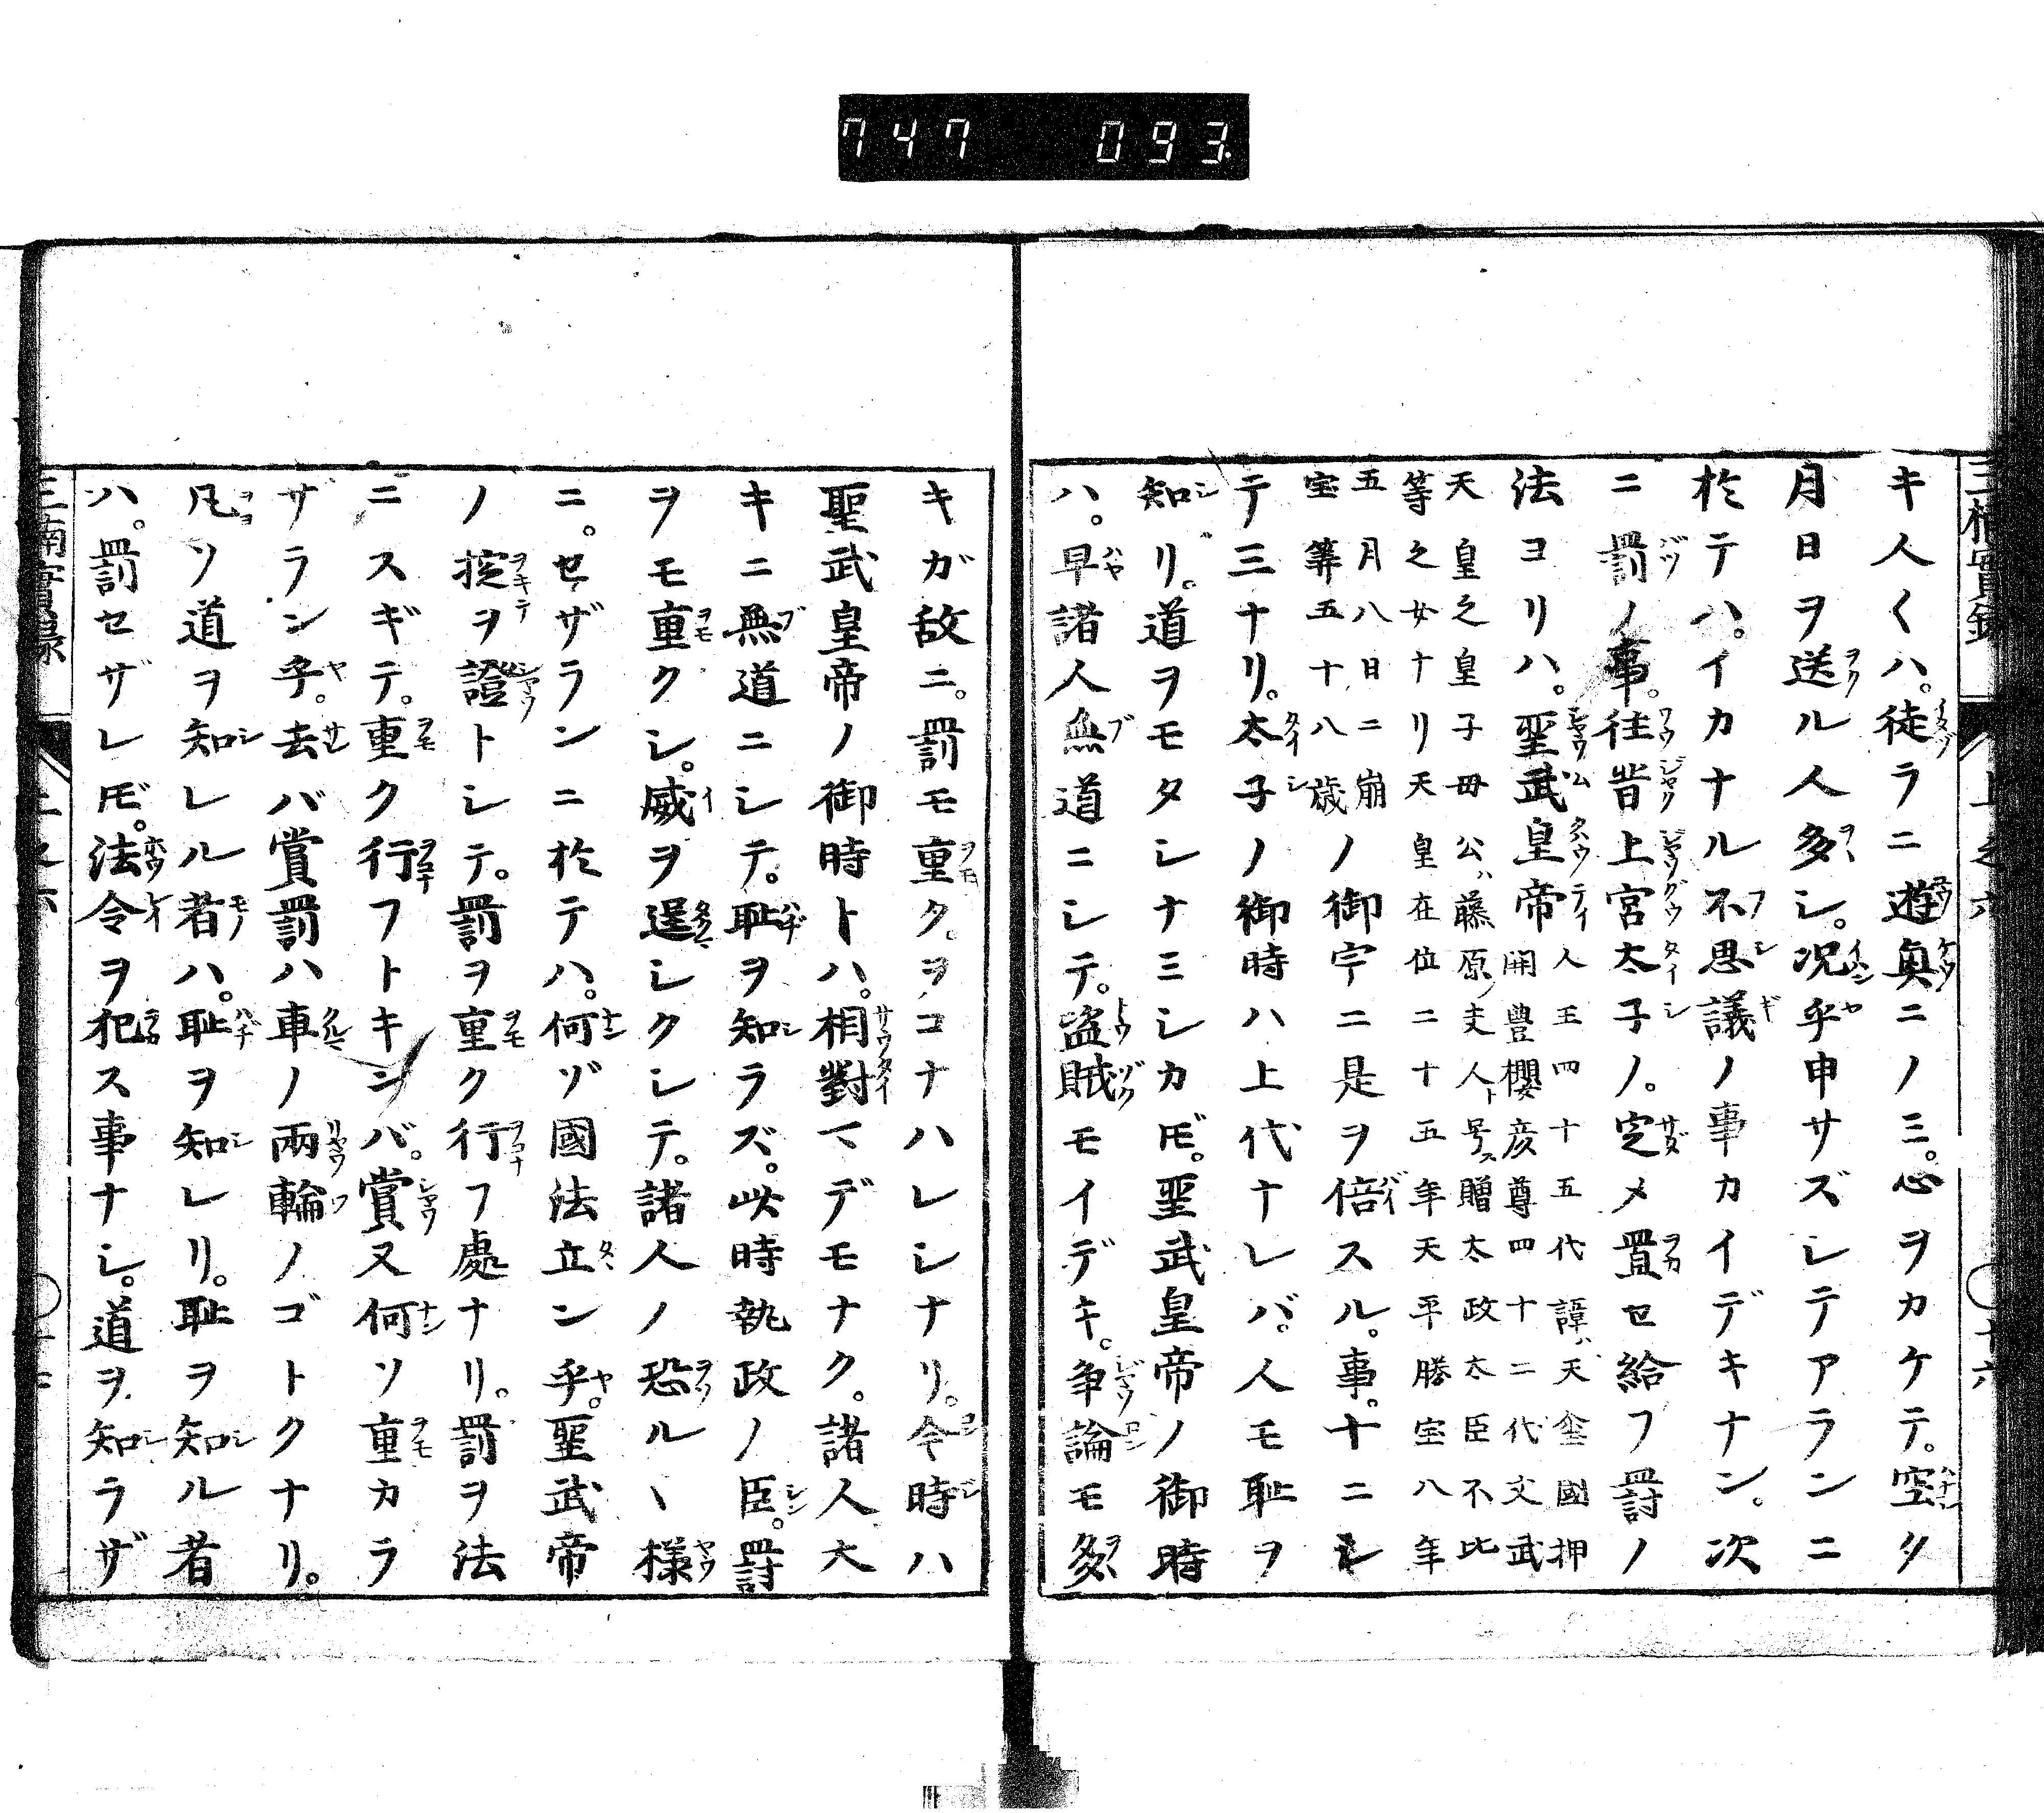 747 093
キ人〱ハ。徒ラニ遊興ニノミ。心ヲカケテ。空タ
月日ヲ送ル人多シ。况乎申サズシテアランニ
於テハ。イカナル不思議ノ事カイデキナン。次
ニ罰ノ事。徃昔上宮太子ノ。定メ置セ給フ罸ノ
法ヨリハ。聖武皇帝
人王四十五代諱ハ天璽國押
開豊櫻彦尊四十二代文武
天皇之皇子母公ハ藤原ノ夫人ト号ス贈太政大臣不比
等之女ナリ天皇在位二十五年天平勝宝八年
五月八日ニ崩
宝筭五十八歳
ノ御宇ニ是ヲ倍スル。事。十ニシ
テ三ナリ。太子ノ御時ハ上代ナレバ。人モ耻ヲ
知リ。道ヲモタシナミシカドモ。聖武皇帝ノ御時
ハ。早諸人無道ニシテ。盗賊モイデキ。争論モ多
キガ故ニ。罰モ重ク。ヲコナハレシナリ。今時ハ
聖武皇帝ノ御時トハ。相對マデモナク。諸人大
キニ無道ニシテ。耻ヲ知ラズ。此時執政ノ臣。罸
ヲモ重クシ。威ヲ逞シクシテ。諸人ノ恐ルヽ様
ニ。セザランニ於テハ。何ゾ國法立ン乎。聖武帝
ノ掟ヲ證トシテ。罰ヲ重ク行フ處ナリ。罰ヲ法
ニスギテ。重ク行フトキンバ。賞又何ソ重カラ
ザラン乎。去バ賞罰ハ車ノ兩輪ノゴトクナリ。
凡ソ道ヲ知レル者ハ。耻ヲ知レリ。耻ヲ知ル者
ハ。罰セザレドモ。法令ヲ犯ス事ナシ。道ヲ知ラザ